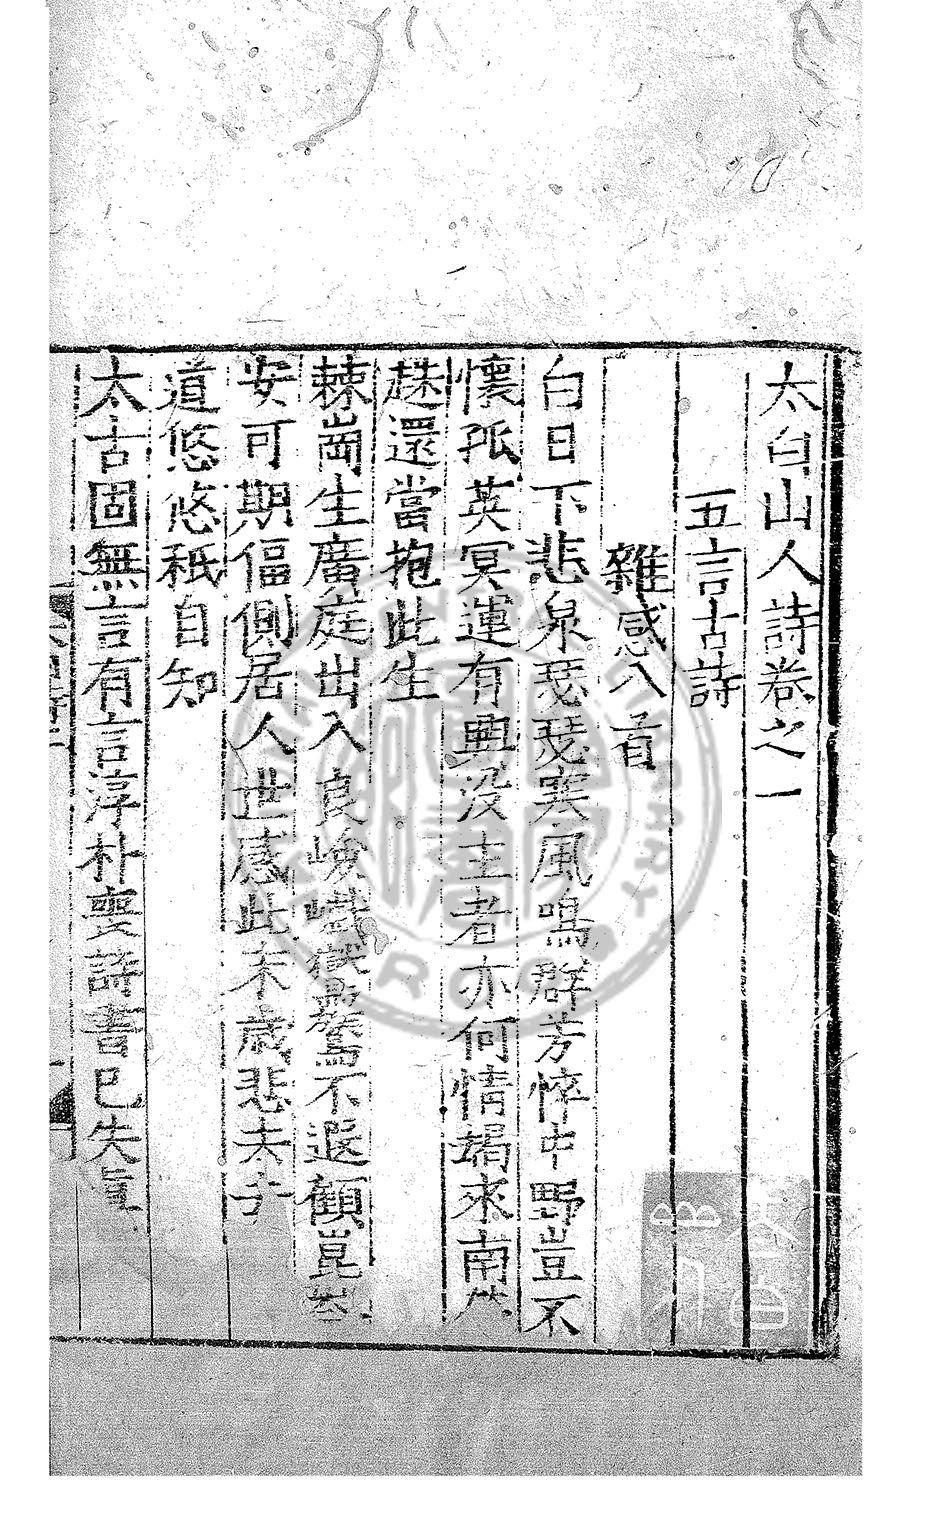 太白山人詩卷之一
五言古詩
雜感八首
白日下悲泉瑟瑟寒風鳴群芳悴中野豈不
懷孤英冥運有興沒主者亦何情朅來南
趎還當抱此生
棘崗生廣庭出入良峻巇嶽驚不遐顧崑
安可期偪側居人世感此未歲悲夫子
道悠悠秖自知
太古固無言有言淳朴喪詩書已失真